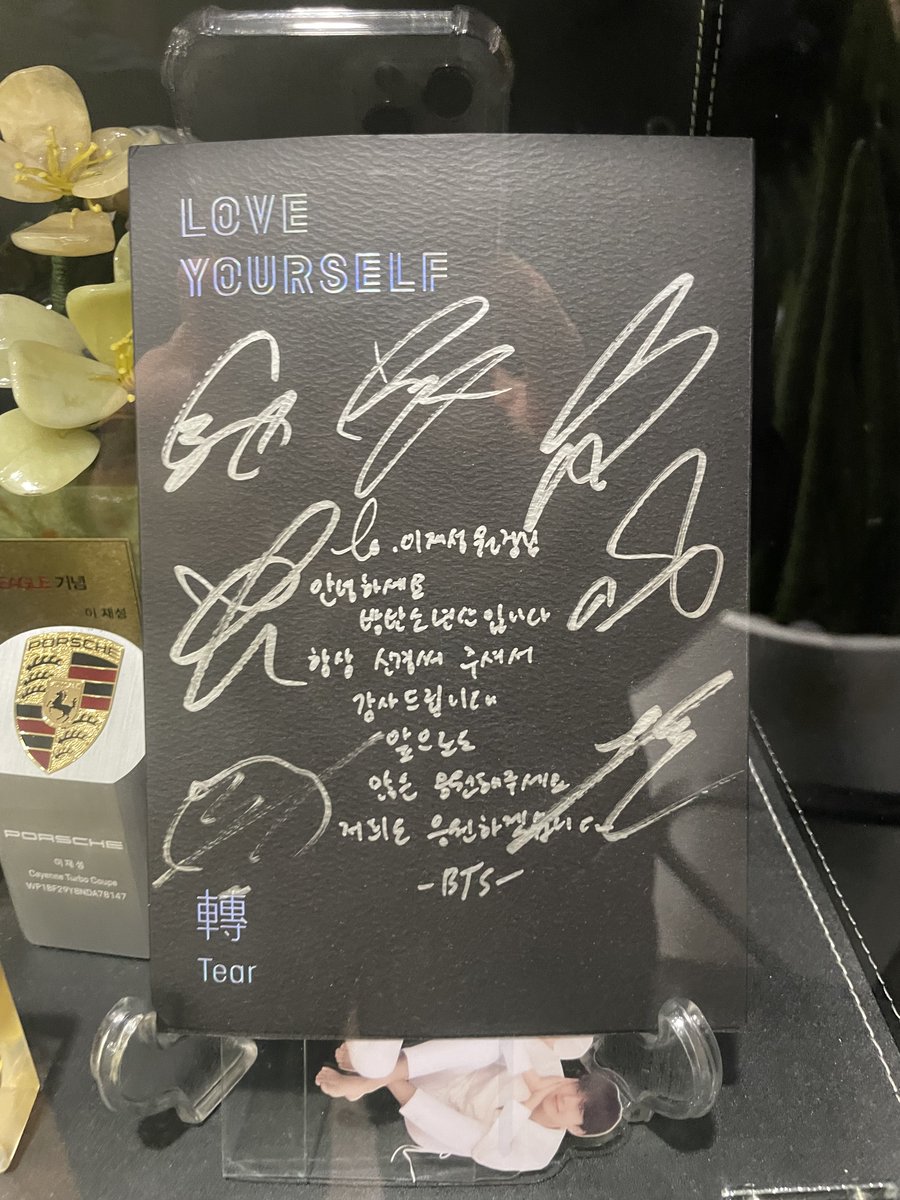 LOVE
YOURSELF
to. 이재성 원장님
안녕하세요
방탄소년단입니다
항상 신경써 주셔서
감사드립니다
앞으로도
많은 응원해주세요
저희도 응원하겠습니다
-BTS-
轉
Tear
EAGLE 기념
이 재성
PORSCHE
PORSCHE
이 재성
Cayenne Turbo Coupe
WP1BF29Y8NDA78147